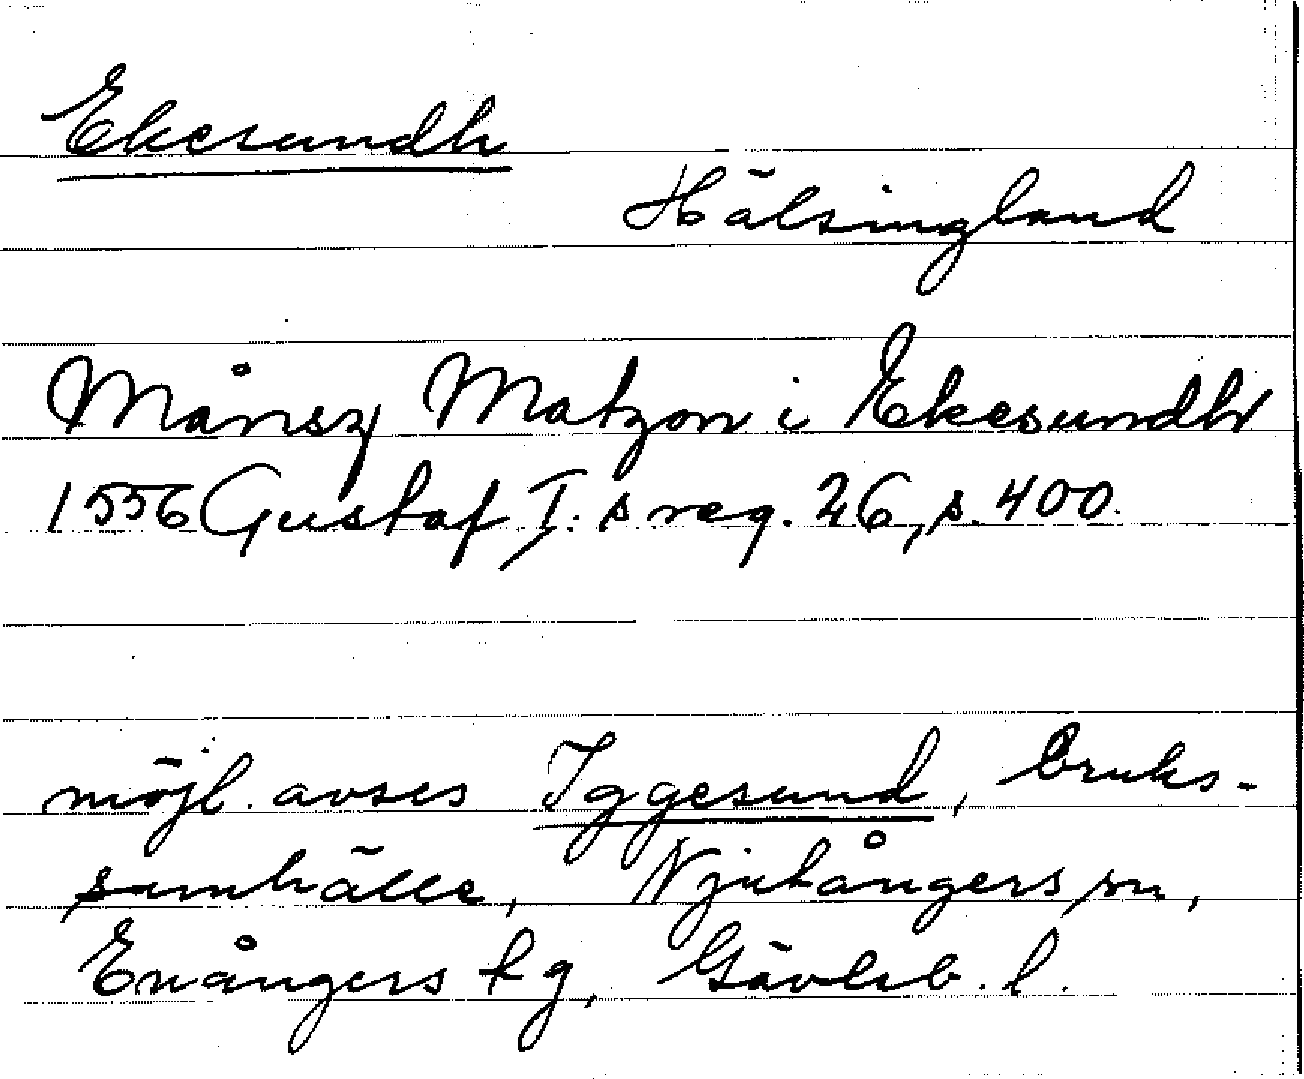 Ekesundh
Hälsingland
Månsz Matzon i Ekesundh
1556 Gustaf I:s reg. 26, s. 400.
möjl. avses Iggesund, bruks-
samhälle, Njutångers sn,
Enångers tg, Gävleb. l.